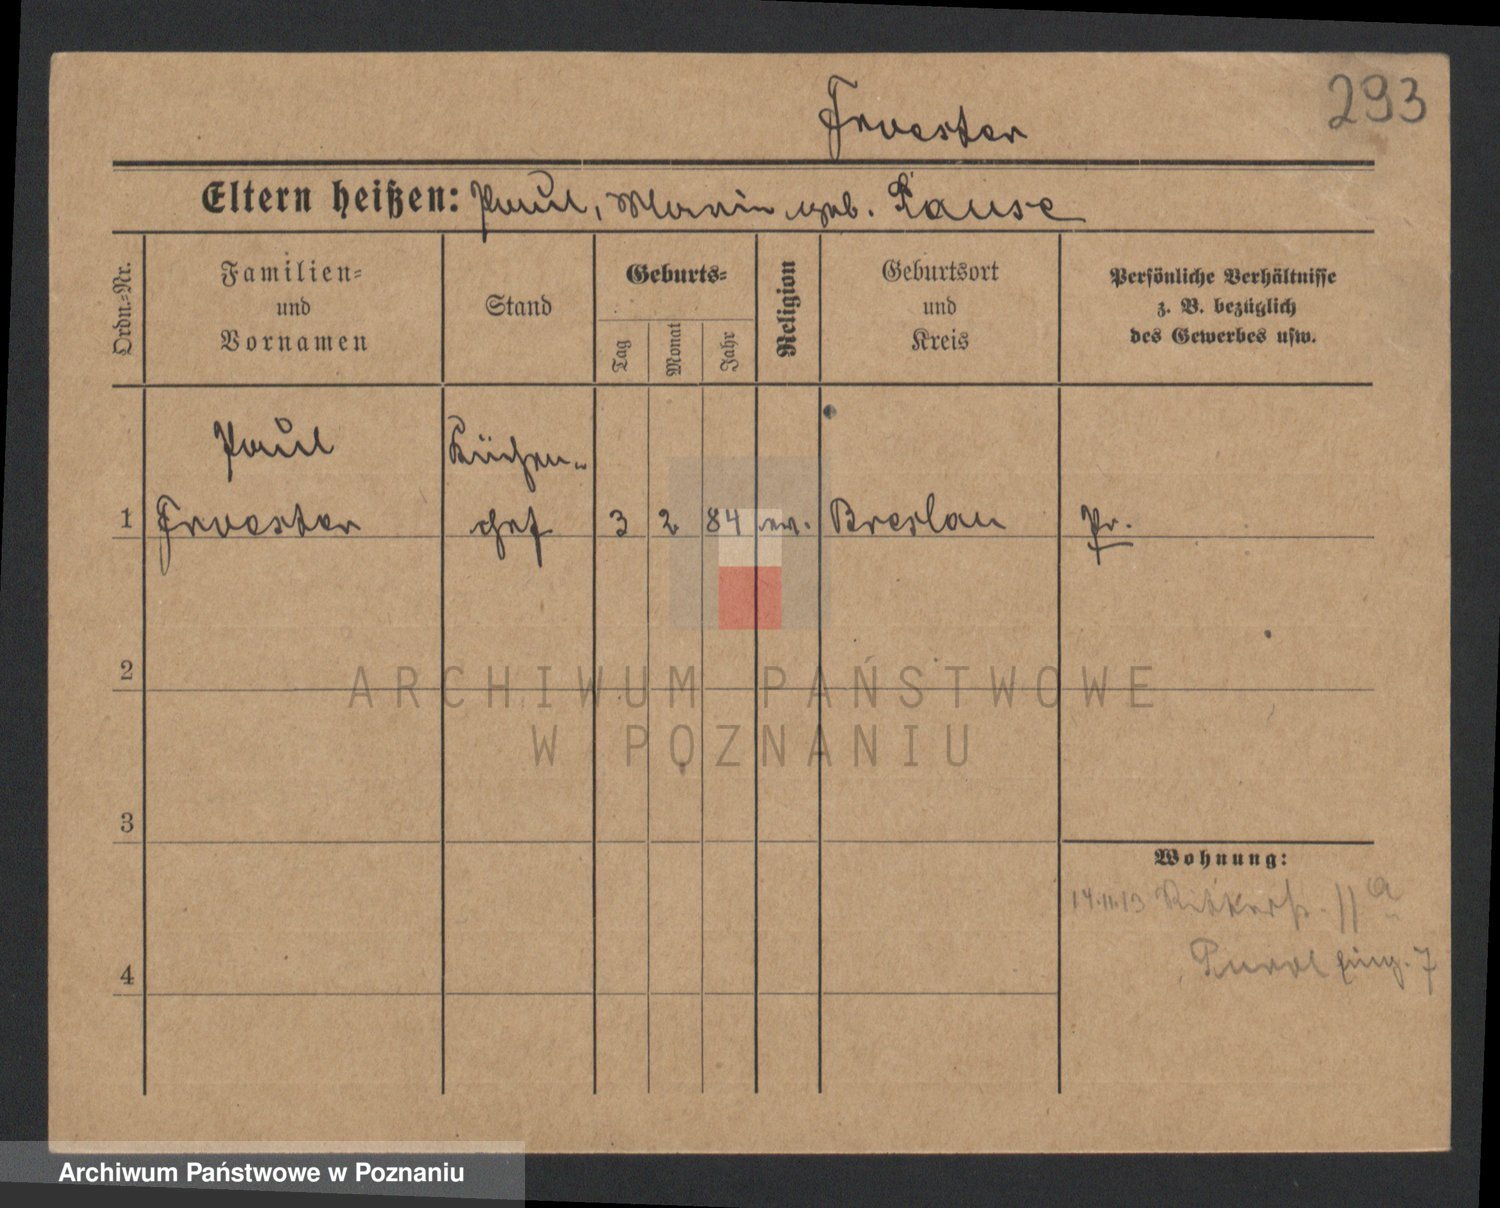 293
Froester
Eltern heißen: Paul, Marie geb. Pause
Ordn.-Nr.
Familien-
und
Vornamen
Stand
Geburts-
Tag
Monat
Jahr
Religion
Geburtsort
und
Kreis
Persönliche Verhältnisse
z. B. bezüglich
des Gewerbes usw.
Paul Küchen-
1 Froester chef 3 2 84 ev. Breslau Pr.
2
ARCHIWUM PAŃSTWOWE
W POZNANIU
3
Wohnung:
14.11.13 Ritterstr. 11a
4
Archiwum Państwowe w Poznaniu